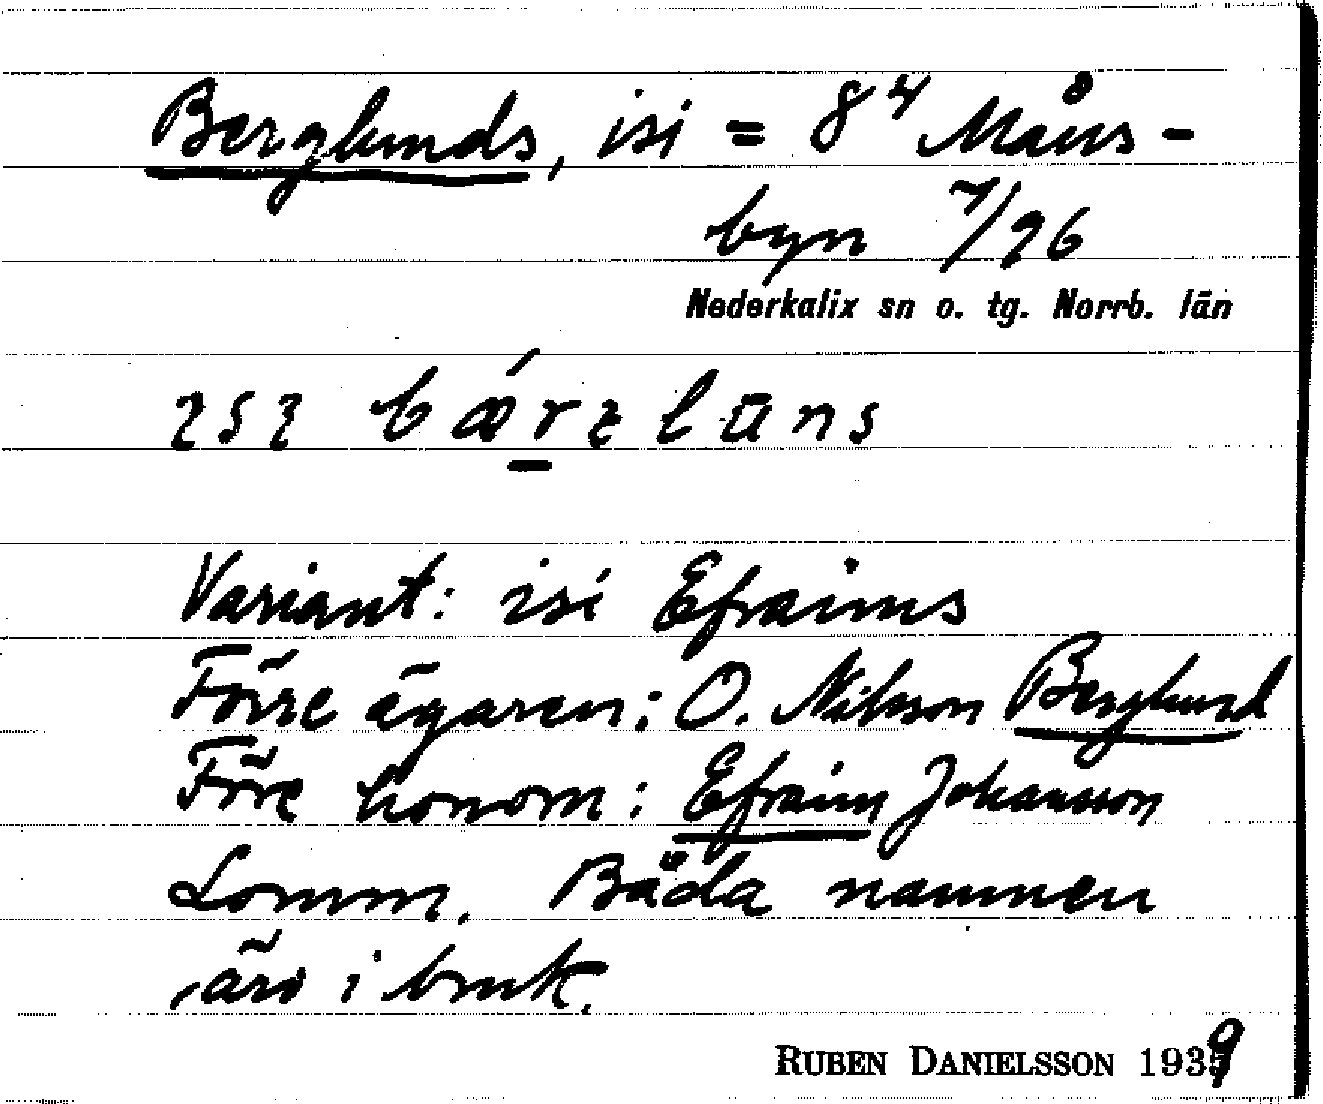 Berglunds, isi = 8⁴ Måns-
byn 7/96
Nederkalix sn o. tg. Norrb. län
Variant: isi Efraims
Förre ägaren: O. Nilsson Berglund
Före honom: Efraim Johansson
Lomm. Båda namnen
äro i bruk.
RUBEN DANIELSSON 1939